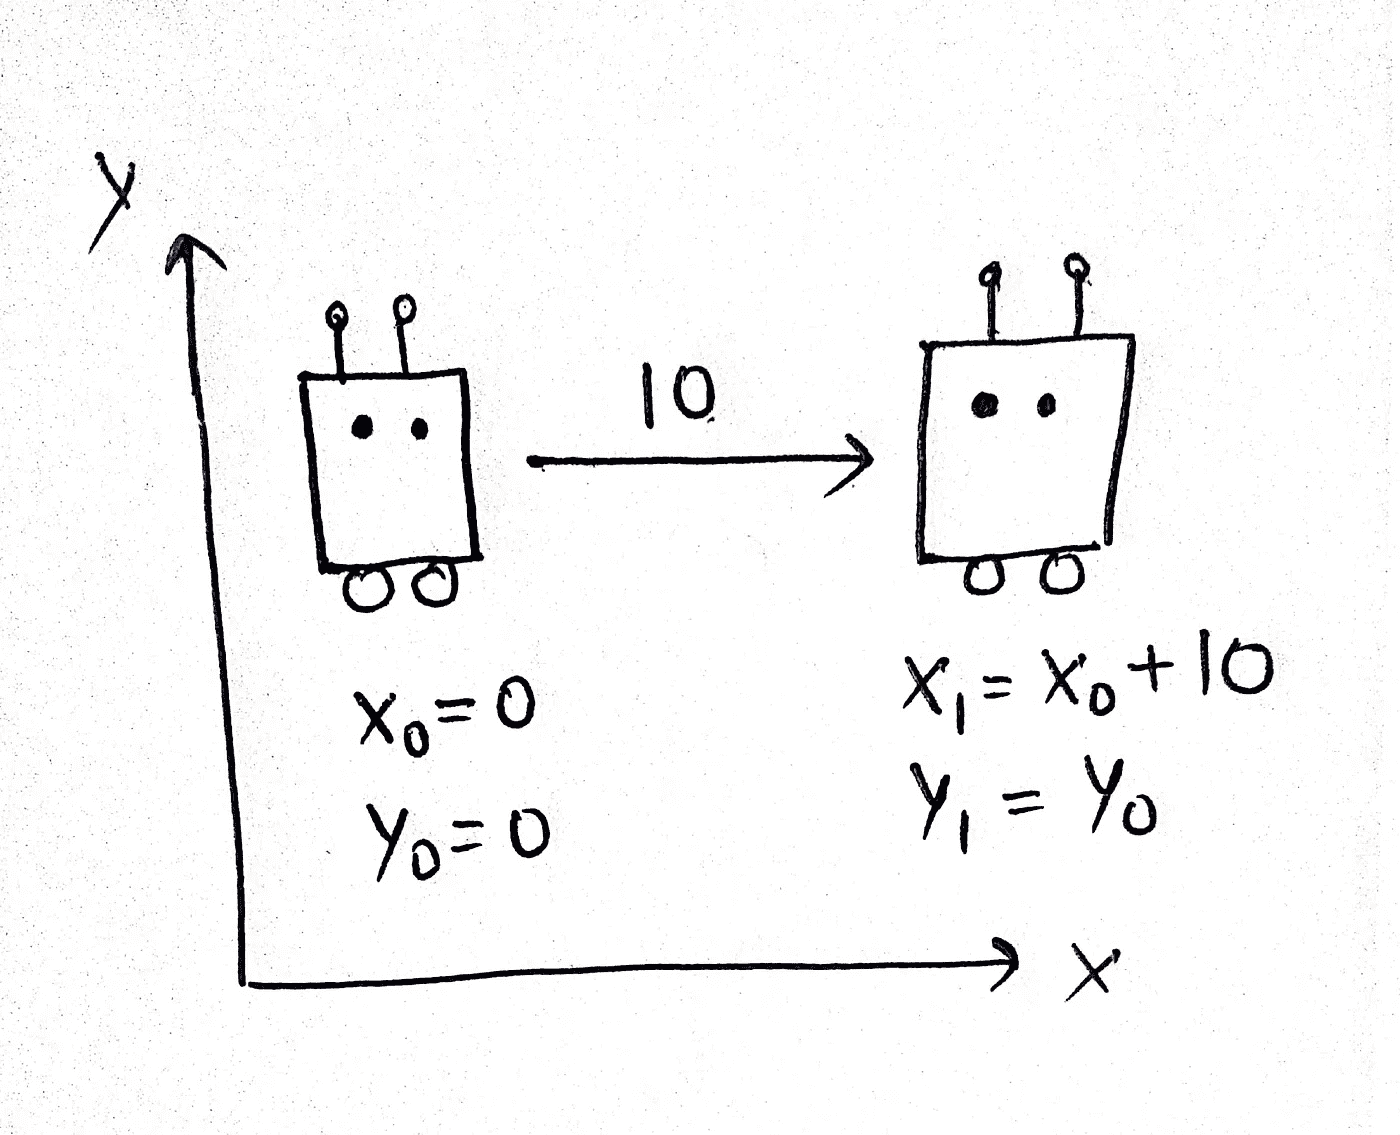 y
10
x₀ = 0
y₀ = 0
x₁ = x₀ + 10
y₁ = y₀
x